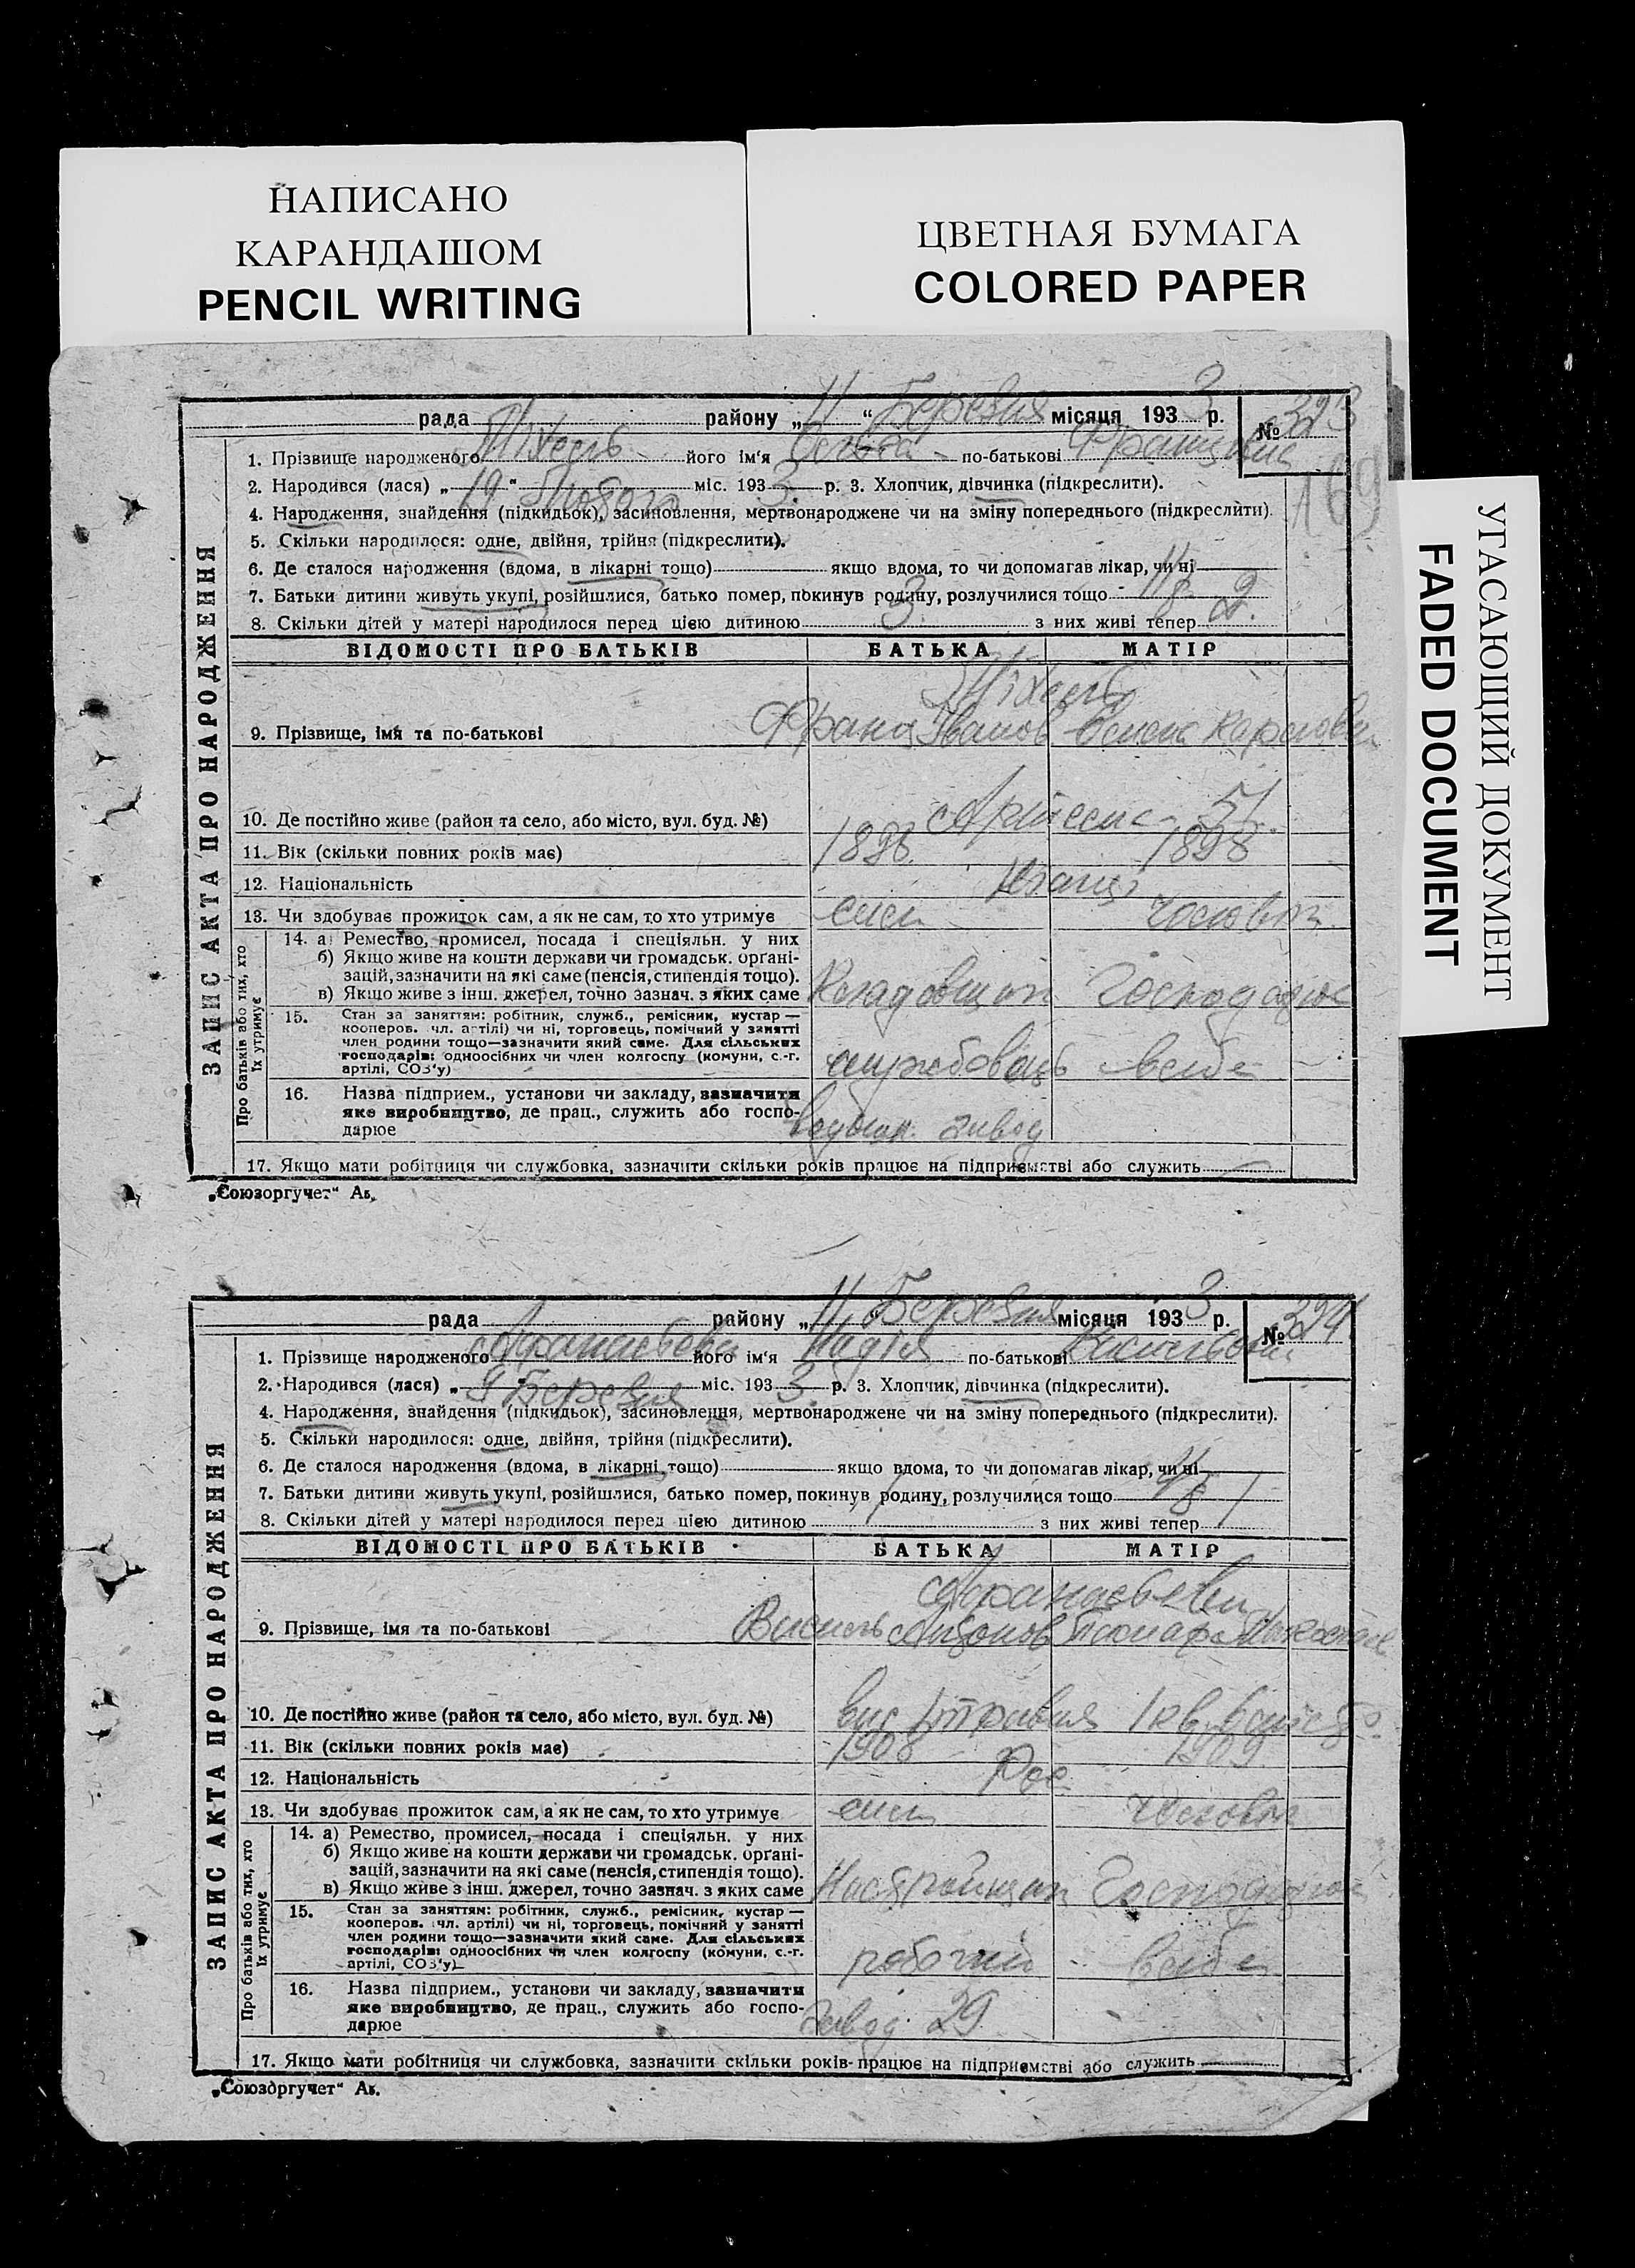 НАПИСАНО
КАРАНДАШОМ
PENCIL WRITING
ЦВЕТНАЯ БУМАГА
COLORED PAPER
УГАСАЮЩИЙ ДОКУМЕНТ
FADED DOCUMENT
ЗАПИС АКТА ПРО НАРОДЖЕННЯ
рада району „11“ Березня місяця 1933 р. № 323
169
1. Прізвище народженого його ім'я по-батькові
2. Народився (лася) „19“ Лютого міс. 1933 р. 3. Хлопчик, дівчинка (підкреслити).
4. Народження, знайдення (підкидьок), засиновлення, мертвонароджене чи на зміну попереднього (підкреслити).
5. Скільки народилося: одне, двійня, трійня (підкреслити).
6. Де сталося народження (вдома, в лікарні тощо) якщо вдома, то чи допомагав лікар, чи ні
7. Батьки дитини живуть укупі, розійшлися, батько помер, покинув родину, розлучилися тощо
8. Скільки дітей у матері народилося перед цією дитиною 3 з них живі тепер 2.
ВІДОМОСТІ ПРО БАТЬКІВ БАТЬКА МАТІР
9. Прізвище, імя та по-батькові Франц Іванов
10. Де постійно живе (район та село, або місто, вул. буд. №)
11. Вік (скільки повних років має) 1898
12. Національність
13. Чи здобуває прожиток сам, а як не сам, то хто утримує сам чоловік
Про батьків або тих, хто їх утримує
14. а) Ремество, промисел, посада і спеціяльн. у них
б) Якщо живе на кошти держави чи громадськ. органі-
зацій, зазначити на які саме (пенсія, стипендія тощо).
в) Якщо живе з інш. джерел, точно зазнач. з яких саме Кладовщик
15. Стан за заняттям: робітник, служб., ремісник, кустар —
кооперов. чл. артілі) чи ні, торговець, помічний у занятті
член родини тощо—зазначити який саме. Для сільських
господарів: одноосібних чи член колгоспу (комуни, с.-г.
артілі, СОЗ'у) службовець
16. Назва підприєм., установи чи закладу, зазначити
яке виробництво, де прац., служить або госпо-
дарює завод
17. Якщо мати робітниця чи службовка, зазначити скільки років працює на підприємстві або служить
„Союзоргучет“ Ак.
ЗАПИС АКТА ПРО НАРОДЖЕННЯ
рада району „11“ Березня місяця 1933 р. № 324
1. Прізвище народженого його ім'я Надія по-батькові
2. Народився (лася) „9“ Березня міс. 1933 р. 3. Хлопчик, дівчинка (підкреслити).
4. Народження, знайдення (підкидьок), засиновлення, мертвонароджене чи на зміну попереднього (підкреслити).
5. Скільки народилося: одне, двійня, трійня (підкреслити).
6. Де сталося народження (вдома, в лікарні тощо) якщо вдома, то чи допомагав лікар, чи ні
7. Батьки дитини живуть укупі, розійшлися, батько помер, покинув родину, розлучилися тощо
8. Скільки дітей у матері народилося перед цією дитиною 1 з них живі тепер 1
ВІДОМОСТІ ПРО БАТЬКІВ БАТЬКА МАТІР
9. Прізвище, імя та по-батькові
10. Де постійно живе (район та село, або місто, вул. буд. №)
11. Вік (скільки повних років має) 1908 1909
12. Національність Рос.
13. Чи здобуває прожиток сам, а як не сам, то хто утримує сам чоловік
Про батьків або тих, хто їх утримує
14. а) Ремество, промисел, посада і спеціяльн. у них
б) Якщо живе на кошти держави чи громадськ. органі-
зацій, зазначити на які саме (пенсія, стипендія тощо).
в) Якщо живе з інш. джерел, точно зазнач. з яких саме
15. Стан за заняттям: робітник, служб., ремісник, кустар —
кооперов. чл. артілі) чи ні, торговець, помічний у занятті
член родини тощо—зазначити який саме. Для сільських
господарів: одноосібних чи член колгоспу (комуни, с.-г.
артілі, СОЗ'у) робочий
16. Назва підприєм., установи чи закладу, зазначити
яке виробництво, де прац., служить або госпо-
дарює завод 29
17. Якщо мати робітниця чи службовка, зазначити скільки років працює на підприємстві або служить
„Союзоргучет“ Ак.